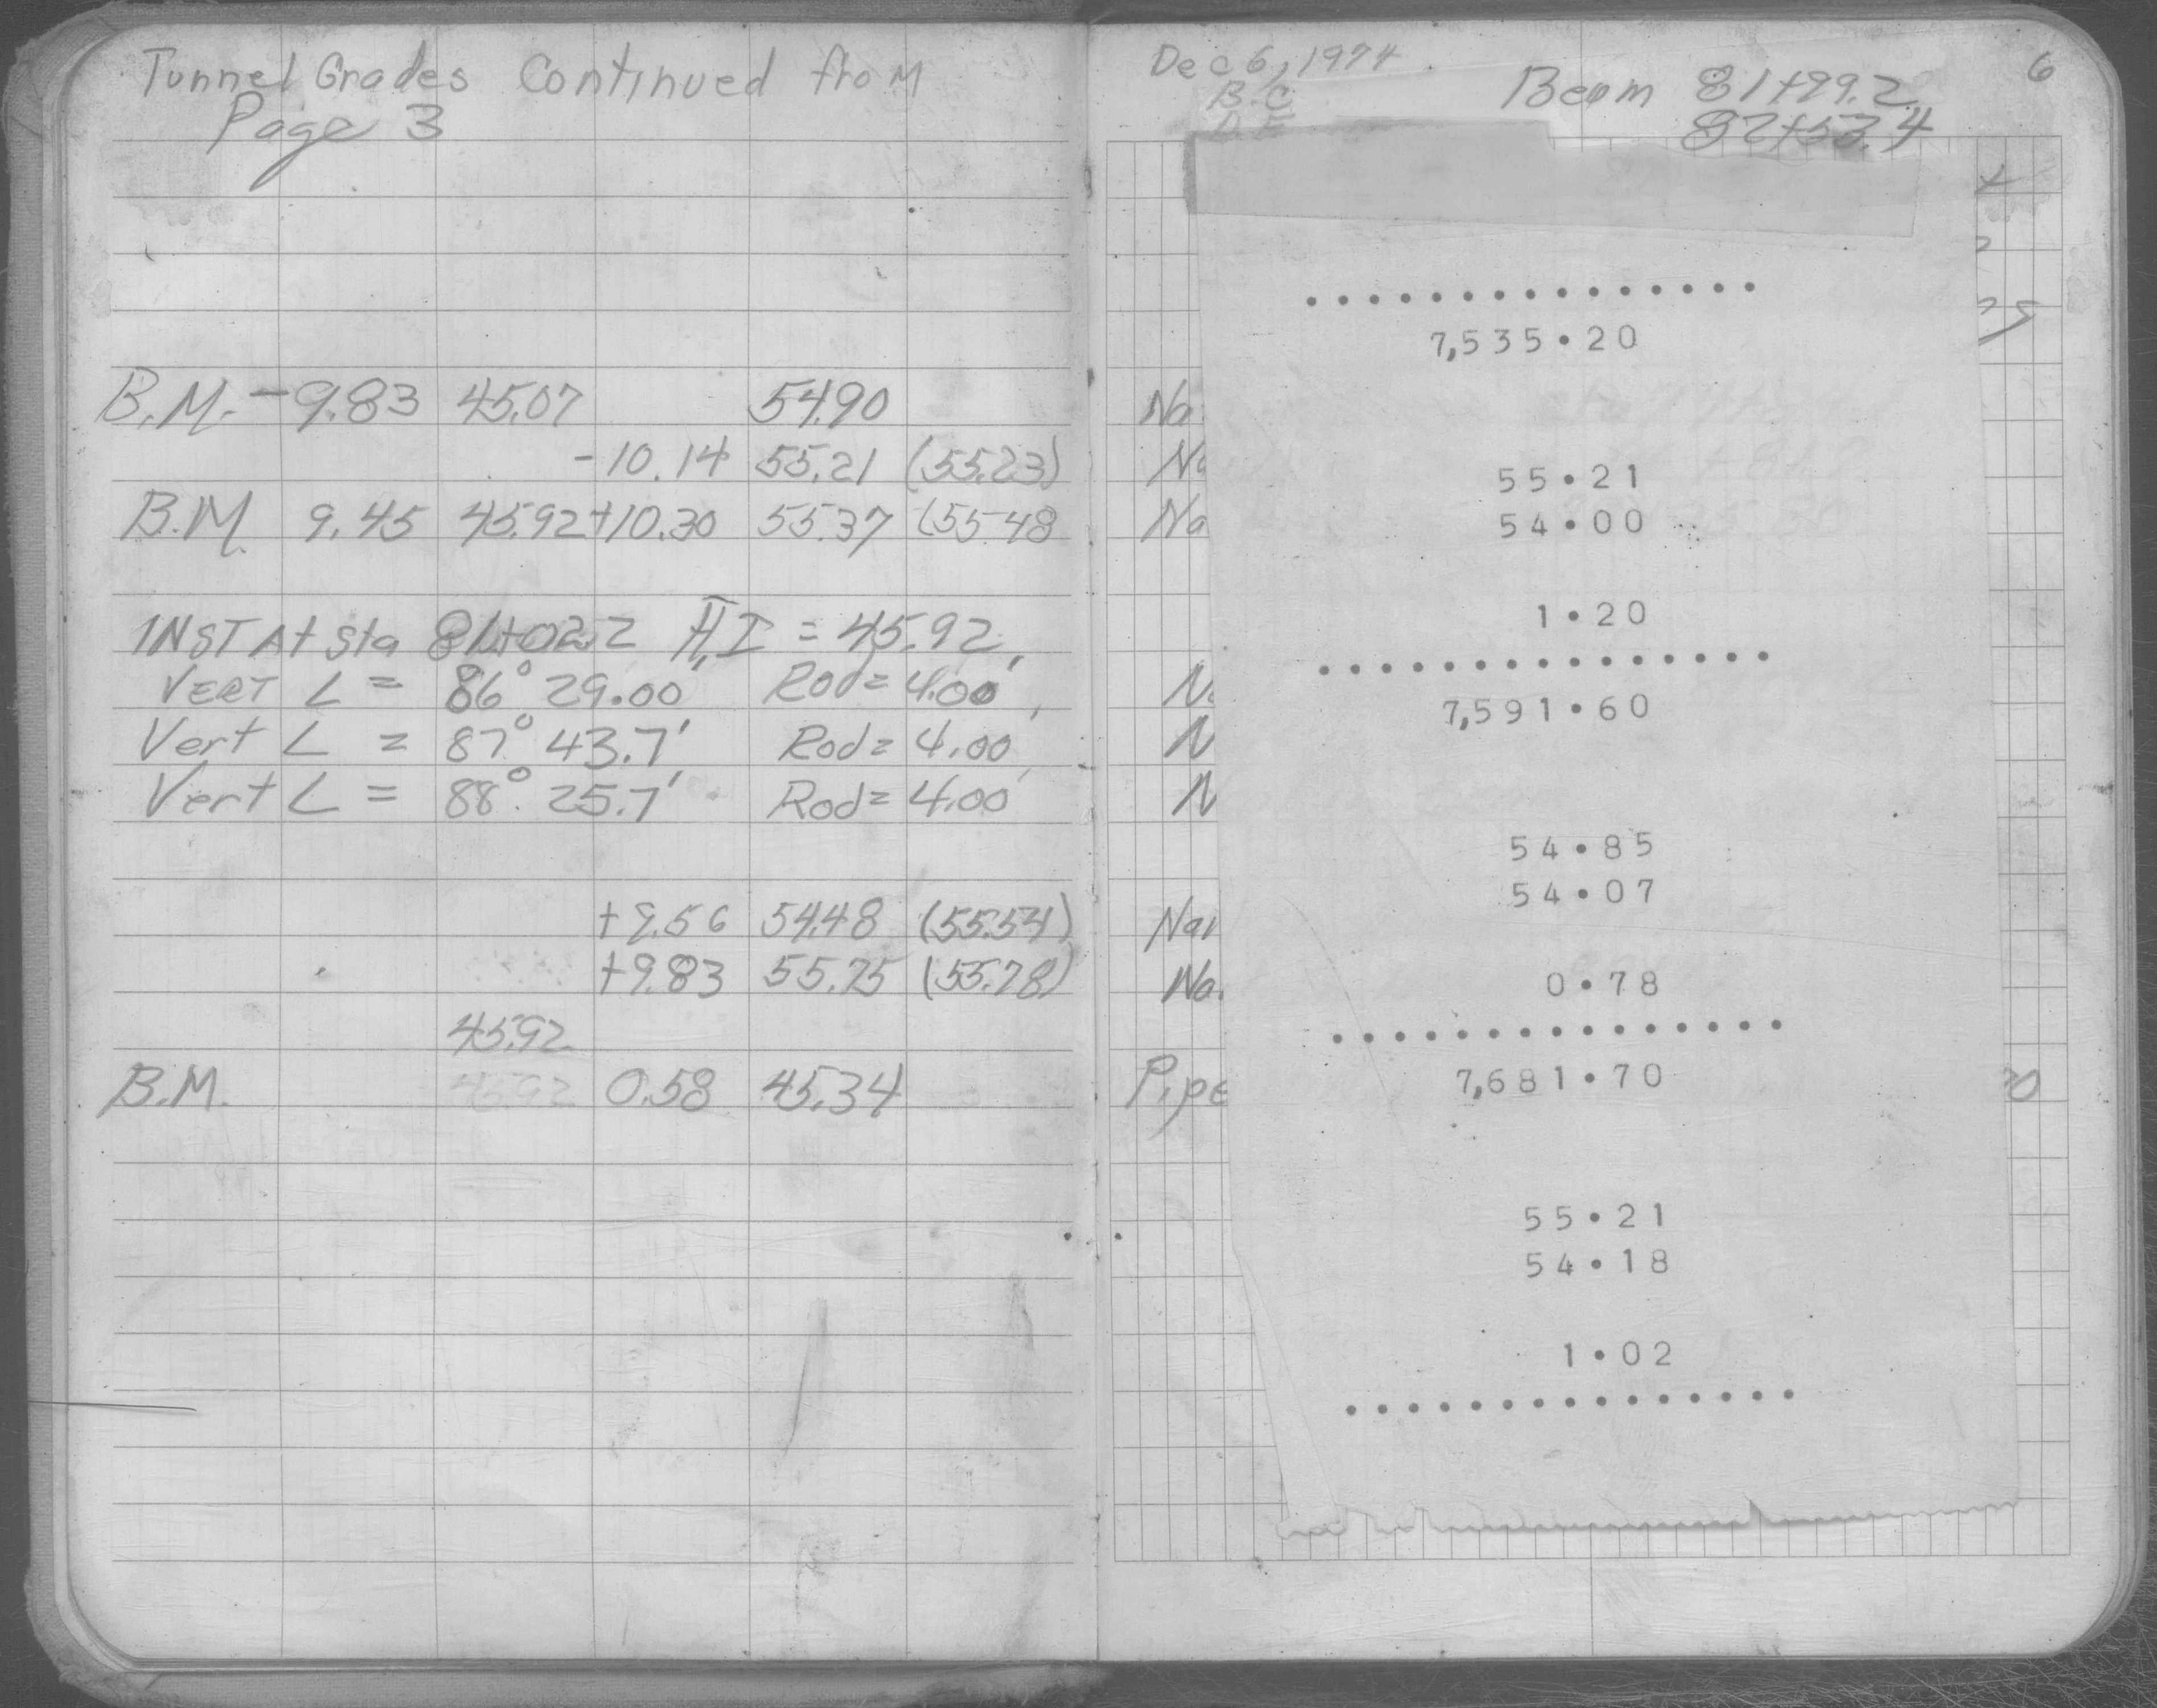 Tunnel Grades Continued from
Page 3
B.M. -9.83 45.07 54.90
-10.14 55.21 (55.23)
B.M. 9.45 45.92 +10.30 55.37 (55.48
INST At Sta 81+02.2 H.I = 45.92
VERT ∠ = 86° 29.00' Rod = 4.00'
Vert ∠ = 87° 43.7' Rod = 4.00'
Vert ∠ = 88° 25.7' Rod = 4.00'
+9.56 54.48 (55.54)
+9.83 55.75 (55.78)
45.92
B.M. 45.92 0.58 45.34
Dec 6, 1974
B.C
Beam 81+99.2
82+53.4
6
7,535.20
55.21
54.00
1.20
7,591.60
54.85
54.07
0.78
7,681.70
55.21
54.18
1.02
Na
Na
Na
N
N
N
Nai
Na
Pipe